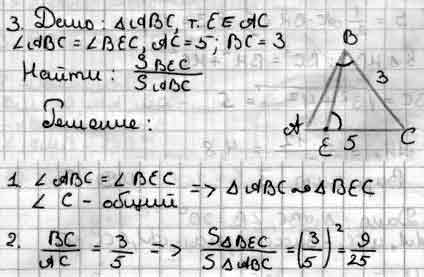 3. Дано: △ABC, т. E ∈ AC
∠ABC = ∠BEC, AC = 5; BC = 3
Найти: S BEC / S ABC
Решение:
B
3
A
E
5
C
1. ∠ABC = ∠BEC
∠C – общий => △ABC ∾ △BEC
2. BC/AC = 3/5 => S△BEC / S△ABC = (3/5)² = 9/25